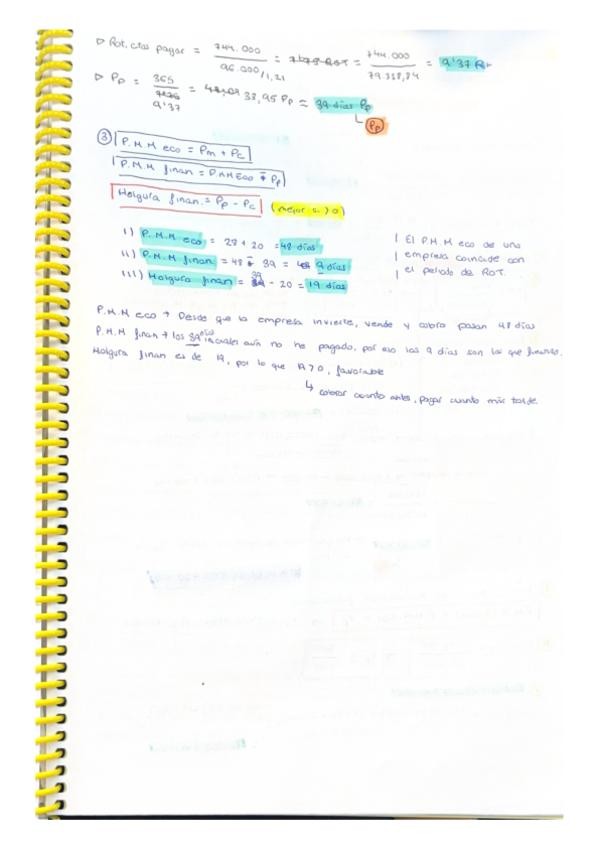 ▷ Rot. ctas pagar = 744.000 / 96.000/1,21 = 7'75 Rot = 744.000 / 79.338,84 = 9'37 R
▷ Pp = 365 / 9'37 = 38,95 Pp ≈ 39 días Pp
↳ Pp
③ P.M.M eco = Pm + Pc
P.M.M finan = P.M.M Eco - Pp
Holgura finan. = Pp - Pc (mejor si > 0)
I) P.M.M eco = 28 + 20 = 48 días
II) P.M.M finan = 48 - 39 = 9 días
III) Holgura finan = 39 - 20 = 19 días
| El P.M.M eco de una
| empresa coincide con
| el periodo de Rot.
P.M.M eco → Desde que la empresa invierte, vende y cobra pasan 48 días
P.M.M finan → los 39 días iniciales aún no he pagado, por eso los 9 días son los que financio.
Holgura finan es de 19, por lo que 19 > 0, favorable
↳ cobrar cuanto antes, pagar cuanto más tarde.